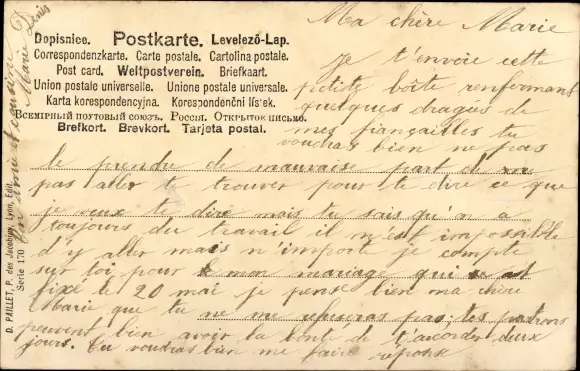 Dopisnice. Postkarte. Levelezö-Lap.
Correspondenzkarte. Carte postale. Cartolina postale.
Post card. Weltpostverein. Briefkaart.
Union postale universelle. Unione postale universale.
Karta korespondencyjna. Korespondenční lístek.
Всемірный почтовый союзъ. Россія. Открытое письмо.
Brefkort. Brevkort. Tarjeta postal.
D. PAILLET, P. des Jacobins, Lyon, Edit.
Serie 170
Ma chère Marie
je t'envoie cette
petite boîte renfermant
quelques dragés de
mes fiançailles tu
voudras bien ne pas
le prendre de mauvaise part de ne
pas aller te trouver pour te dire ce que
je veux te dire mais tu sais qu'on a
toujours du travail il m'est impossible
d'y aller mais n'importe je compte
sur toi pour mon mariage qui est
fixé le 20 mai je pense bien ma chère
Marie que tu ne me refuseras pas les patrons
peuvent bien avoir la bonté de t'accorder deux
jours. Tu voudras bien me faire réponse
amie et cousine
Marie Denis